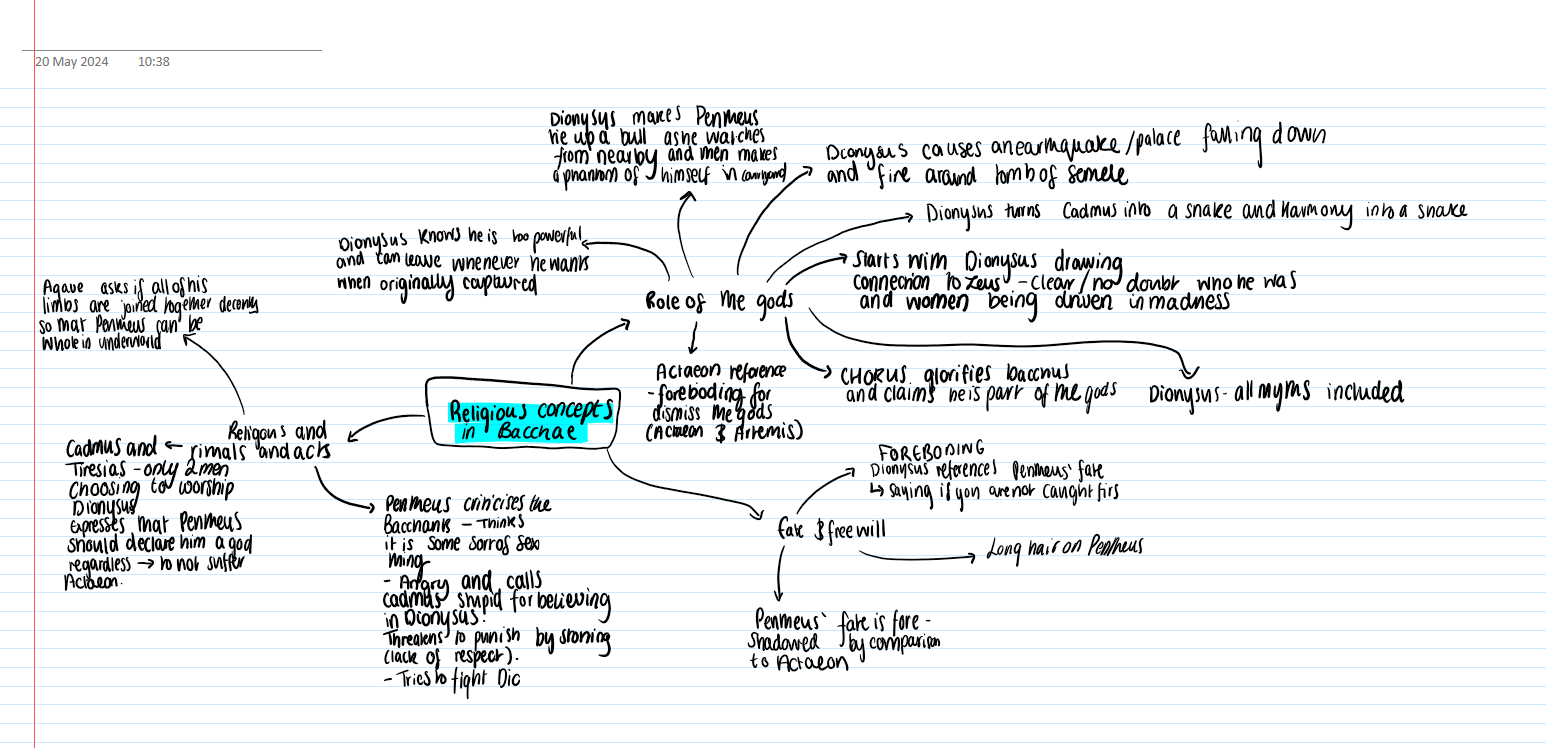 20 May 2024 10:38
Dionysus makes Pentheus
tie up a bull as he watches
from nearby and then makes
a phantom of himself in courtyard
Dionysus causes an earthquake/palace falling down
and fire around tomb of Semele
Dionysus turns Cadmus into a snake and Harmony into a snake
Dionysus knows he is too powerful
and can leave whenever he wants
when originally captured
Starts with Dionysus drawing
connection to Zeus - clear/no doubt who he was
and women being driven in madness
Role of the gods
Agave asks if all of his
limbs are joined together decently
so that Pentheus can be
whole in underworld
Actaeon reference
- foreboding for
dismiss the gods
(Actaeon & Artemis)
CHORUS glorifies bacchus
and claims he is part of the gods
Dionysus - all myths included
Religious concepts
in Bacchae
Religous and
rituals and acts
Cadmus and
Tiresias - only 2 men
choosing to worship
Dionysus
expresses that Pentheus
should declare him a god
regardless → to not suffer
Actaeon.
Pentheus criticises the
Bacchants - thinks
it is some sort of sex
thing
- Angry and calls
cadmus stupid for believing
in Dionysus.
Threatens to punish by stoning
(lack of respect).
- Tries to fight Dio
FOREBODING
Dionysus references Pentheus' fate
↳ saying if you are not caught first
fate & free will
Long hair on Pentheus
Pentheus' fate is fore-
shadowed by comparison
to Actaeon